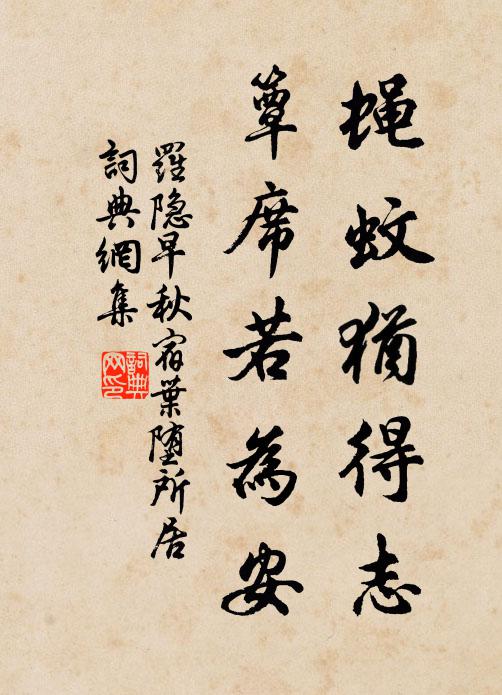 蝇蚊猶得志
簟席若為安
羅隐早秋宿葉堕所居
詞典網集
詞典网印